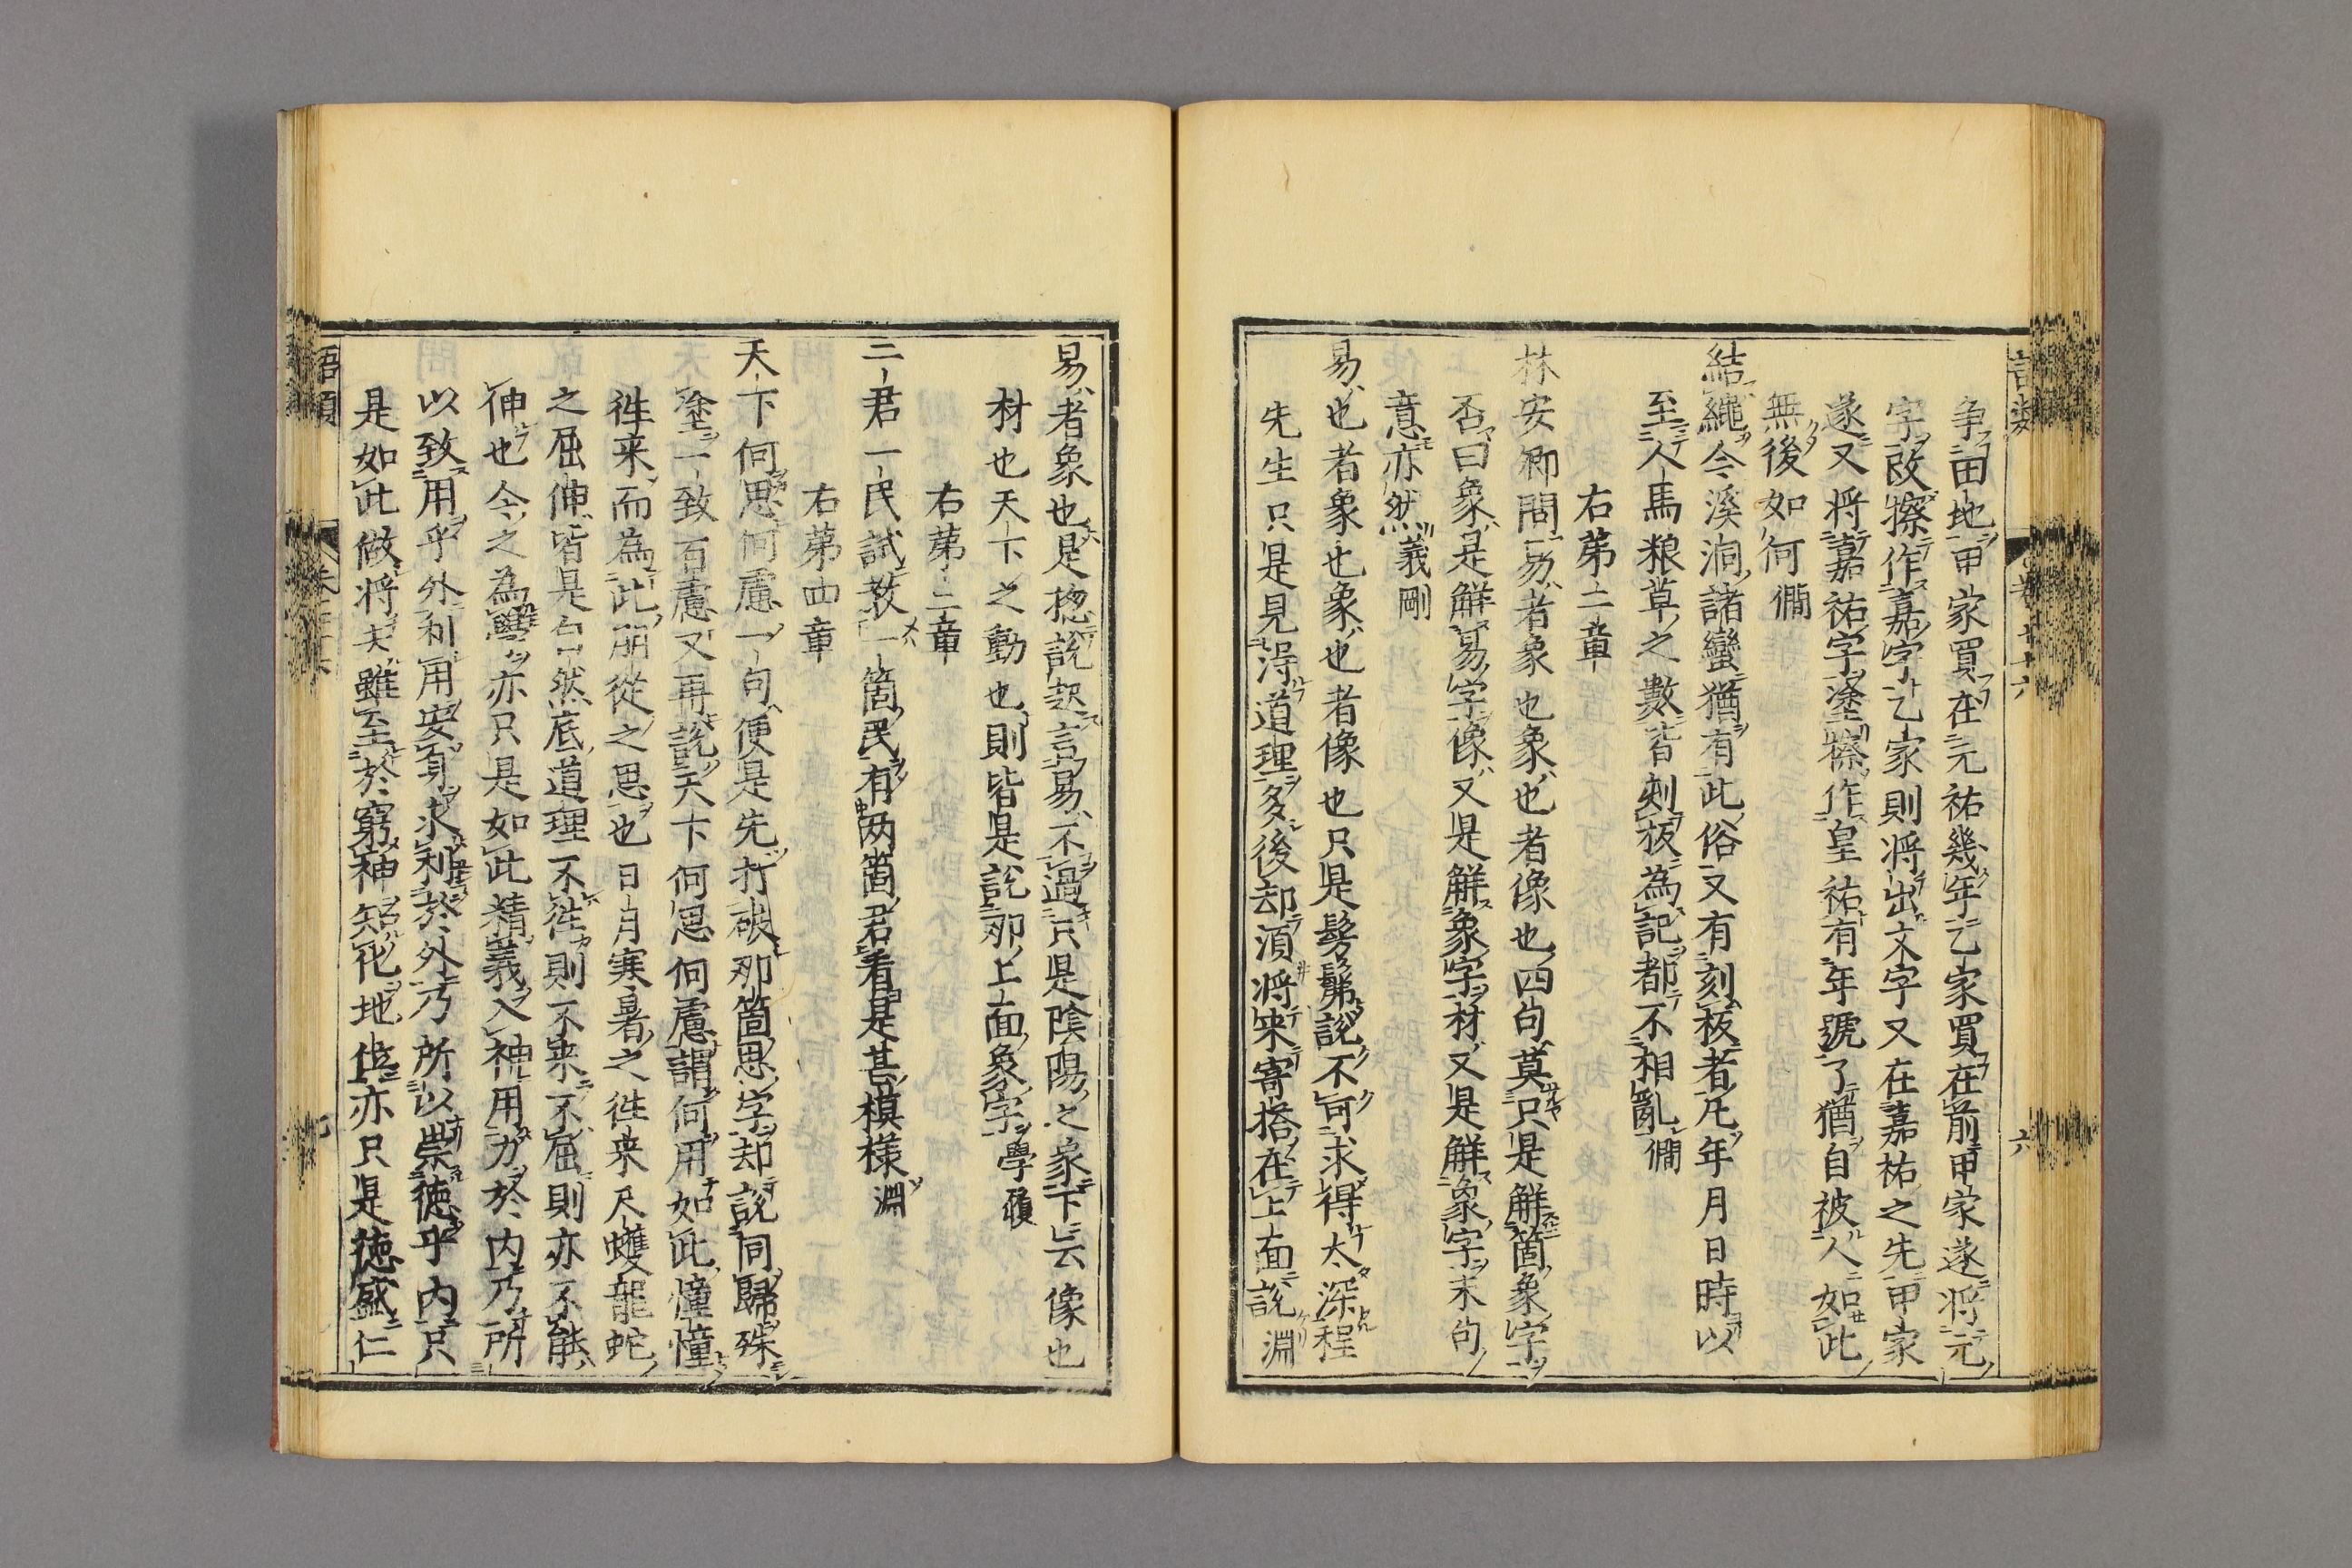 争田地甲家買在元祐幾年乙家買在前甲家遂将元
字改擦作嘉字乙家則将出文字又在嘉祐之先甲家
遂又将嘉祐字塗擦作皇祐有年號了猶自被人如此
無後如何僩
結繩今溪洞諸蠻猶有此俗又有刻板者凡年月日時以
至人馬粮草之數皆刻板為記都不相亂僩
右第二章
林安卿問易者象也象也者像也四句莫只是解箇象字
否曰象是解易字像又是解象字材又是解象字末句
意亦然義剛
易也者象也象也者像也只是髣髴說不可求得太深程
先生只是見得道理多後却須將来寄搭在上面說淵
易者象也是揔說起言易不過只是陰陽之象下云像也
材也天下之動也則皆是說那上面象字學履
右第三章
二君一民試教一箇民有两箇君看是甚模様淵
右第四章
天下何思何慮一句便是先打破那箇思字却說同歸殊
塗一致百慮又再說天下何思何慮謂何用如此憧憧
徃来而為此朋從之思也日月寒暑之徃来尺蠖龍蛇
之屈伸皆是自然底道理不徃則不来不屈則亦不能
伸也今之為學亦只是如此精義入神用力於内乃所
以致用乎外利用安身求利於外乃所以崇徳乎内只
是如此做将去雖至於窮神知化地位亦只是徳盛仁